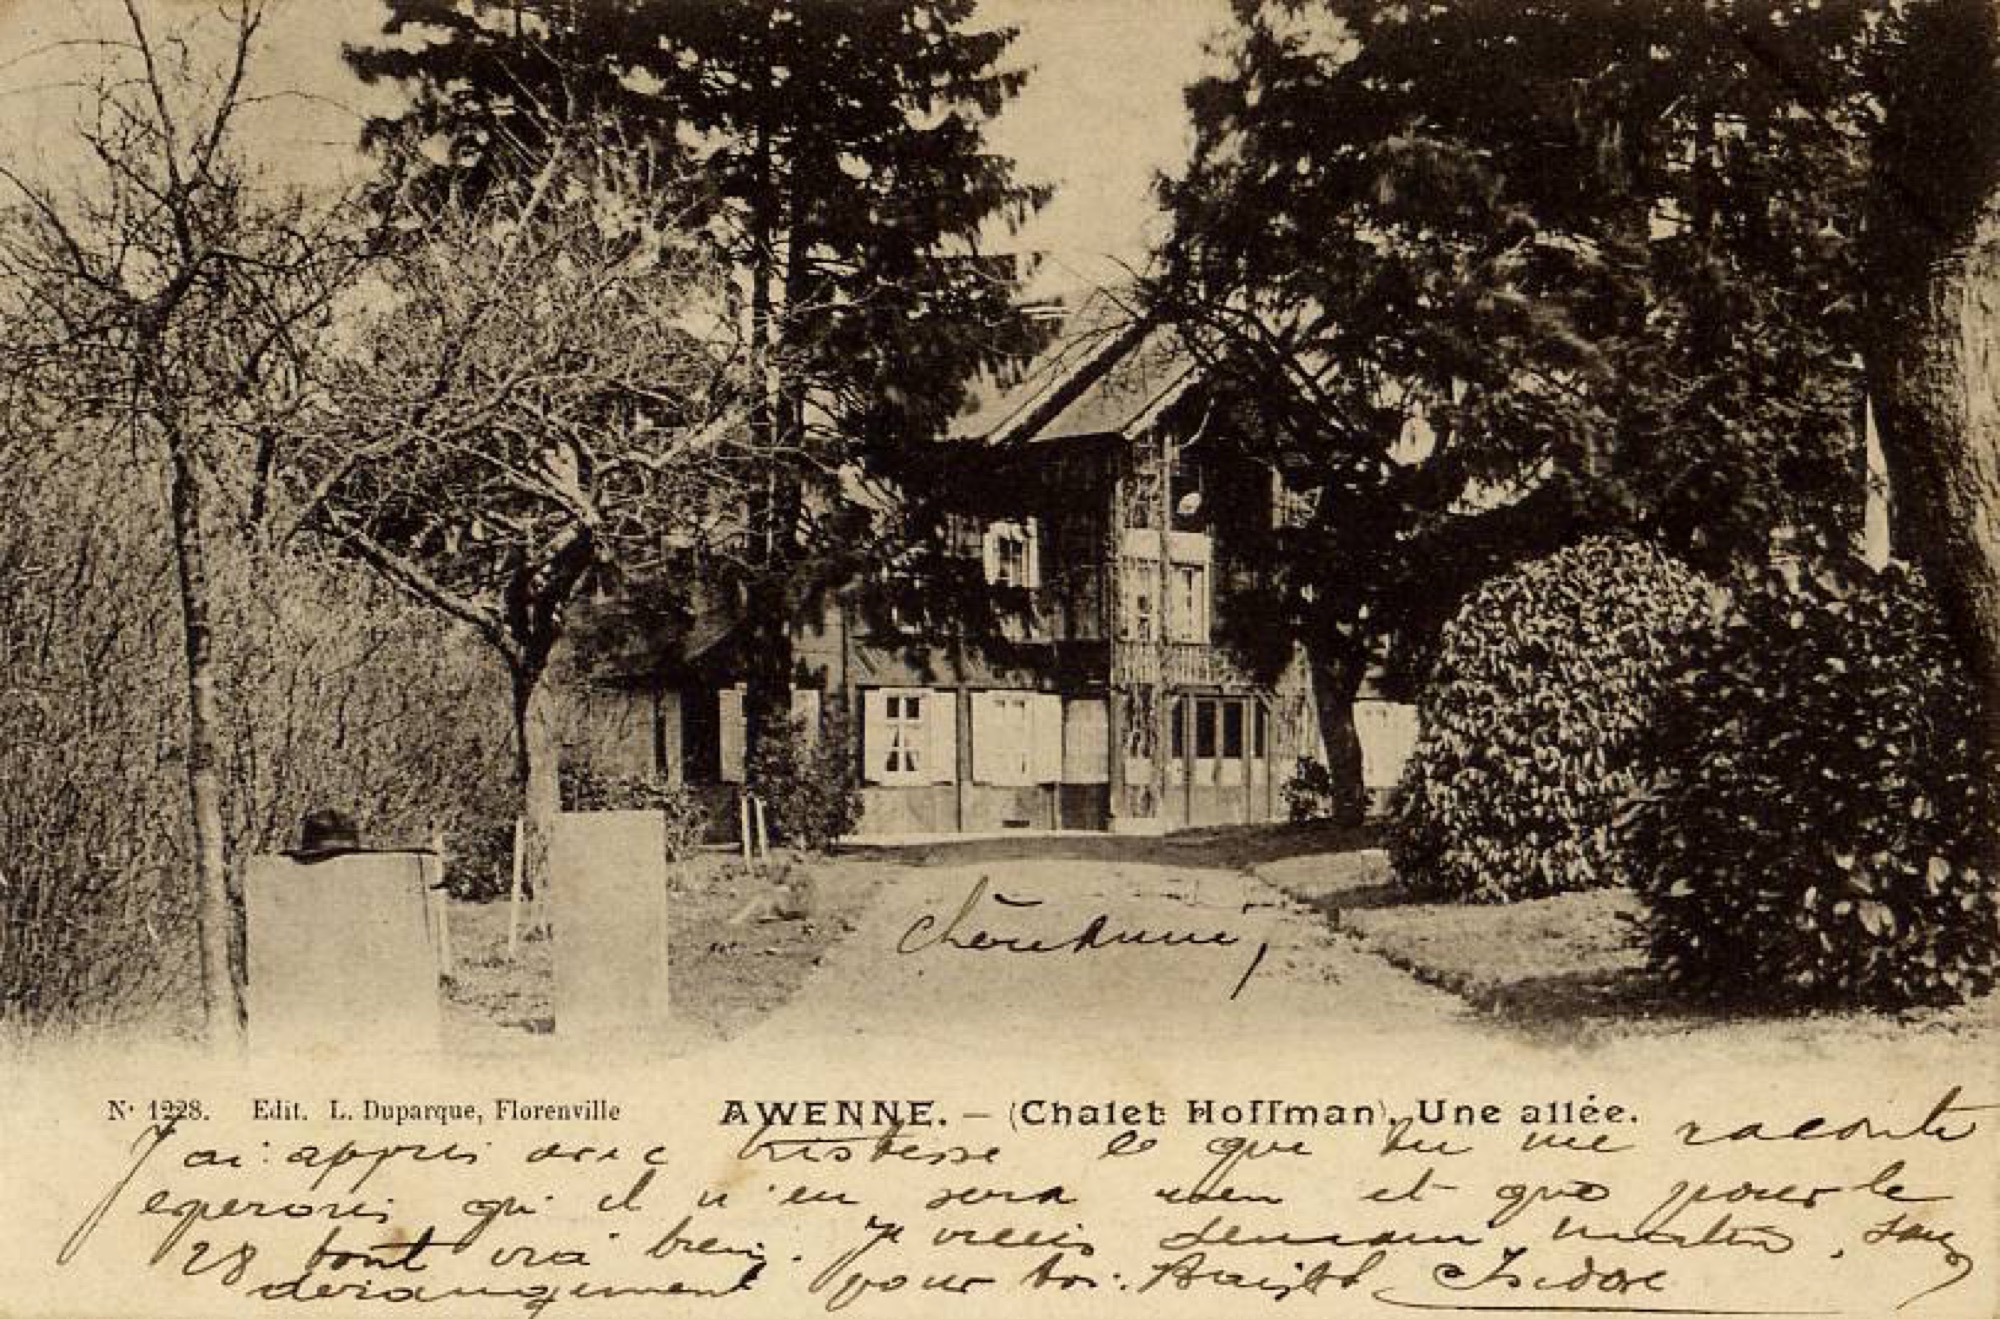 chère Anna,
N° 1228. Edit. L. Duparque, Florenville AWENNE. — (Chalet Hoffman), Une allée.
J'ai appris avec tristesse ce que tu me raconte
esperons qu'il n'en sera rien et que pour le
28 tout ira bien. Je viens demain matin, sans
derangement pour toi. Isidore